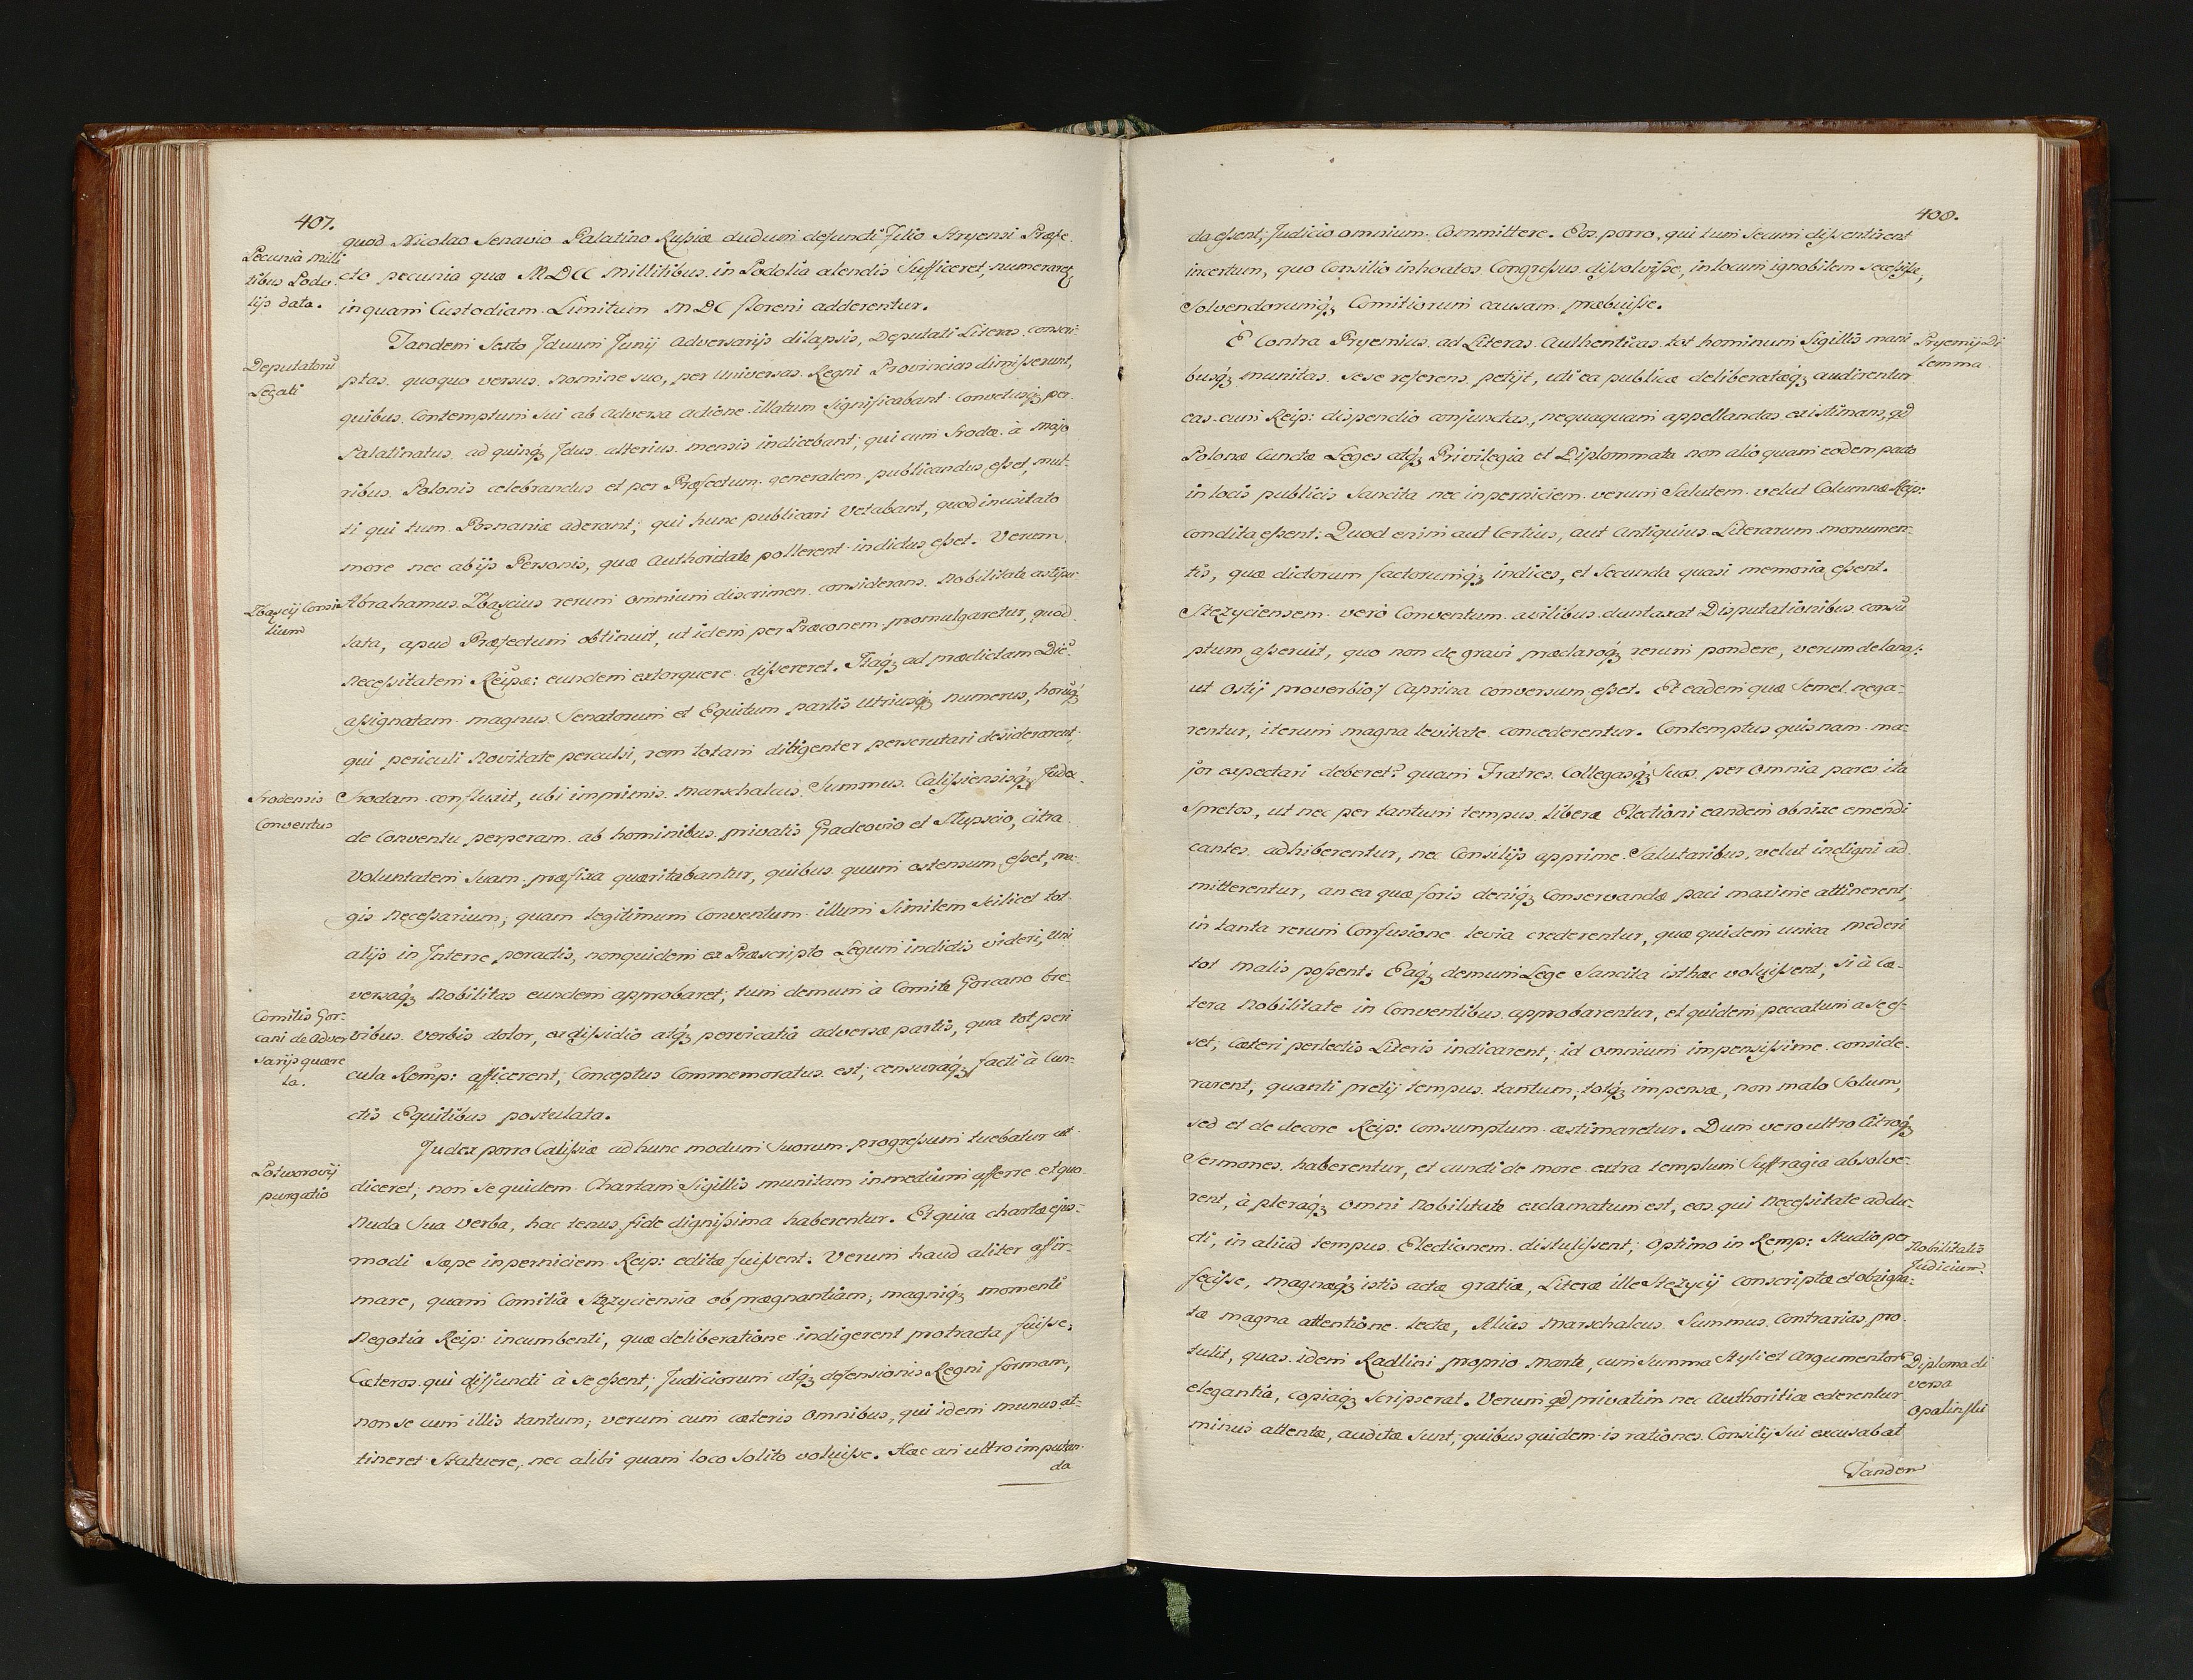 407.
Pecunia milli
tibus Podo
lijs data.
quod Nicolao Senavio Palatino Rußiæ dudum defuncti Filio Stryensi Præfe
cto pecunia quæ MDCC millitibus in Podolia alendis Sufficeret, numeraretʒ
in quam Custodiam Limitum MDC floreni adderentur.
Tandem Sexto Iduum Junij Adversarijs dilapsis, Deputati Literas conscri-
Deputatorū
Legati
ptas quoquo versus Nomine suo, per Universas Regni Provincias dimisserunt,
quibus Contemptum Sui ab adversa actione illatum Significabant Conventusq́ʒ per
Palatinatus ad quinq́ʒ Idus alterius mensis indicebant; qui cum Srodæ à majo
ribus Polonis celebrandus et per Præfectum generalem publicandus eßet, mul-
ti qui tum Posnaniæ aderant; qui hunc publicari Vetabant, quod inusitato
more nec ab ijs Personis, quæ Authoritate pollerent indictus eßet. Verum
Zbąscij Consi
lium
Abrahamus Zbąscius rerum omnium discrimen considerans Nobilitate astipu-
lata, apud Præfectum obtinuit, ut idem per Præconem promulgaretur, quod
Neceßitatem Reipæ: eundem extorquere dißereret. Itaq́ʒ ad prædictam Diē
aßignatam magnus Senatorum et Equitum partis utriusq́ʒ numerus, horūq́ʒ
qui periculi Novitate perculsi, rem totam diligenter perscrutari desiderarent;
Srodensis
Conventus
Srodam confluxit, ubi imprimis Marschalcus Summus Calißiensisq́ʒ Judex
de Conventu perperam ab hominibus privatis Gradeovio et Slupscio, citra
Voluntatem Suam præfixa quæritabantur, quibus quum ostensum eßet, ma-
gis Neceßarium, quam legitimum Conventum illum Similem Scilicet tot
alijs in Interre peractis, non quidem ex Præscripto Legum indictis videri, Uni
versaq́ʒ Nobilitas eundem approbaret; tum demum à Comite Gorcano bre-
Comitis Gor-
cani de Adver
sarijs quære
la.
vibus Verbis dolor, ex dißidio atq́ʒ pervicatia adversæ partis, qua tot peri
cula Remp: afficerent, Conceptus Commemoratus est; censuraq́ʒ facti à Cun-
ctis Equitibus postulata.
Judex porro Calißiæ ad hunc modum Suorum progreßum tuebatur ut
Potworovij
purgatio
diceret; non se quidem Chartam Sigillis munitam in medium afferre et quo
Nuda Sua Verba, hac tenus fide digníßima haberentur. Et quia chartæ ejus-
modi Sæpe in perniciem Reip: editæ fuißent. Verum haud aliter affir-
mare, quam Comitia Stężyciensia ob prægnantiam, magniq́ʒ momenti
Negotia Reip: incumbenti, quæ deliberatione indigerent protracta fuiße;
Cæteros qui disjuncti à Se eßent; Judiciorum atq́ʒ defensionis Regni formam,
non se cum illis tantum; verum cum cæteris omnibus, qui idem munus at-
tineret Statuere, nec alibi quam loco Solito voluiße. Hæc an ultro imputan-
da
408.
da eßent; Judicio omnium Committere. Eos porro, qui tum Secum dißentirent
incertum, quo Consilio inhoatos Congreßus dißolviße, in locum ignobilem Seceßiße,
Solvendorumq́ʒ Comitiorum causam præbuiße.
È Contra Pryemius ad Literas Authenticas tot hominum Sigillis mani
Pryemij Di
lemma
busq́ʒ munitas sese referens petijt, uti ea publicæ deliberatæq́ʒ audirentur
eas cum Reip: dispendio conjunctas, nequaquam appellandas existimans, qd
Polonæ Cunctæ Leges atq́ʒ Privilegia et Diplommata non alio quam eodem pacto
in locis publicis Sancita nec in perniciem verum Salutem velut Columnæ Reip:
condita eßent: Quod enim aut Certius, aut Antiquius Literarum monumen-
tis, quæ dictorum factorumq́ʒ indices, et Secunda quasi memoria eßent.
Stężyciensem vero Conventum avilibus duntaxat Disputationibus consū
ptum aßeruit, quo non de gravi præclaroq́ʒ rerum pondere, verum de lana /:
ut ostij proverbio:/ Caprina conversum eßet. Et eadem quæ Semel nega-
rentur, iterum magna levitate concederentur. Contemptus quisnam ma-
jor expectari deberet? quam Fratres Collegasq́ʒ Suos per omnia pares ita
Spretos, ut nec per tantum tempus liberæ Electioni eandem obnixe emendi
cantes adhiberentur, nec Consilijs apprime Salutaribus, velut indigni ad-
mitterentur, an ea quæ foris deniq́ʒ Conservandæ paci maxime attinerent,
in tanta rerum Confusione levia crederentur, quæ quidem unica mederi
tot malis poßent. Eaq́ʒ demum Lege Sancita isthæc voluißent; si à Cæ-
tera Nobilitate in Conventibus approbarentur, et quidem peccatum a se es-
set; Cæteri perlectis Literis indicarent, id omnium impensißime conside-
rarent, quanti pretij tempus tantum, totq́ʒ impensæ, non malo Solum,
sed et dedecore Reip: Consumptum æstimaretur. Dum vero ultro Citroq́ʒ
Sermones haberentur, et cundi de more extra templum Suffragia absolve-
rent, à pleraq́ʒ omni Nobilitate exclamatum est, eos qui Neceßitate addu-
cti, in aliud tempus Electionem distulißent; Optimo in Remp: Studio per
Nobilitatis
Judicium.
feciße, magnæq́ʒ istis actæ gratiæ, Literæ illæ Stężycij conscriptæ et obsigna-
tæ magna attentione lectæ, Alias Marschalcus Summus Contrarias pro-
tulit, quas idem Radlini proprio Marte, cum Summa Styli et Argumentorū
Diploma di
versa
Opalinsky
elegantia, copiaq́ʒ Scripserat. Verum qd privatim nec Authoritiæ ederentur
minus attentæ, auditæ Sunt; quibus quidem is rationes Consilij Sui excusabat
Tandem